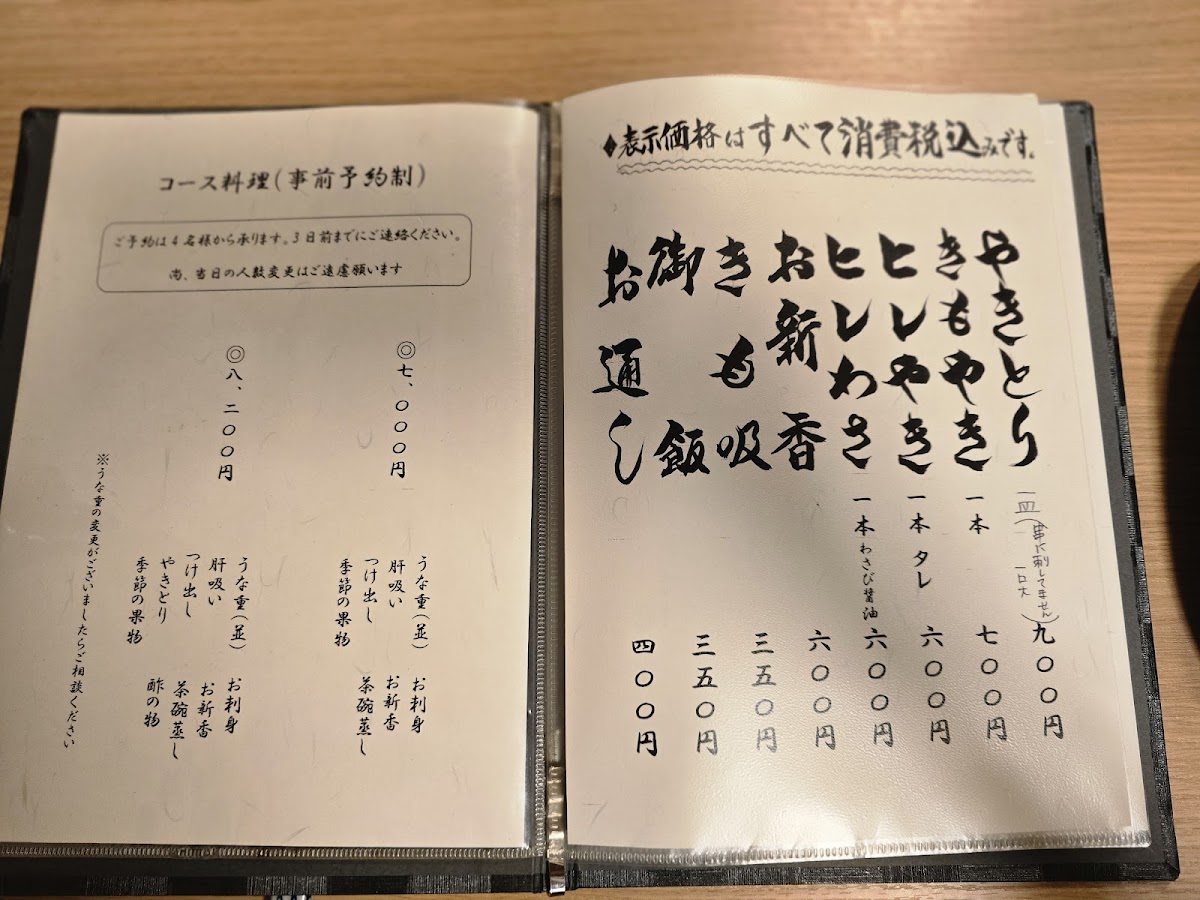 コース料理(事前予約制)
ご予約は4名様から承ります。3日前までにご連絡ください。
尚、当日の人数変更はご遠慮願います
◎七、〇〇〇円
うな重(並) お刺身
肝吸い お新香
つけ出し 茶碗蒸し
季節の果物
◎八、二〇〇円
うな重(並) お刺身
肝吸い お新香
つけ出し 茶碗蒸し
やきとり 酢の物
季節の果物
※うな重の変更がございましたらご相談ください
◆表示価格はすべて消費税込みです。
やきとり 一皿(串に刺してません) 九〇〇円
きもやき 一本 七〇〇円
ヒレやき 一本 タレ 六〇〇円
ヒレわさ 一本 わさび醤油 六〇〇円
お新香 六〇〇円
きも吸 三五〇円
御飯 三五〇円
お通し 四〇〇円